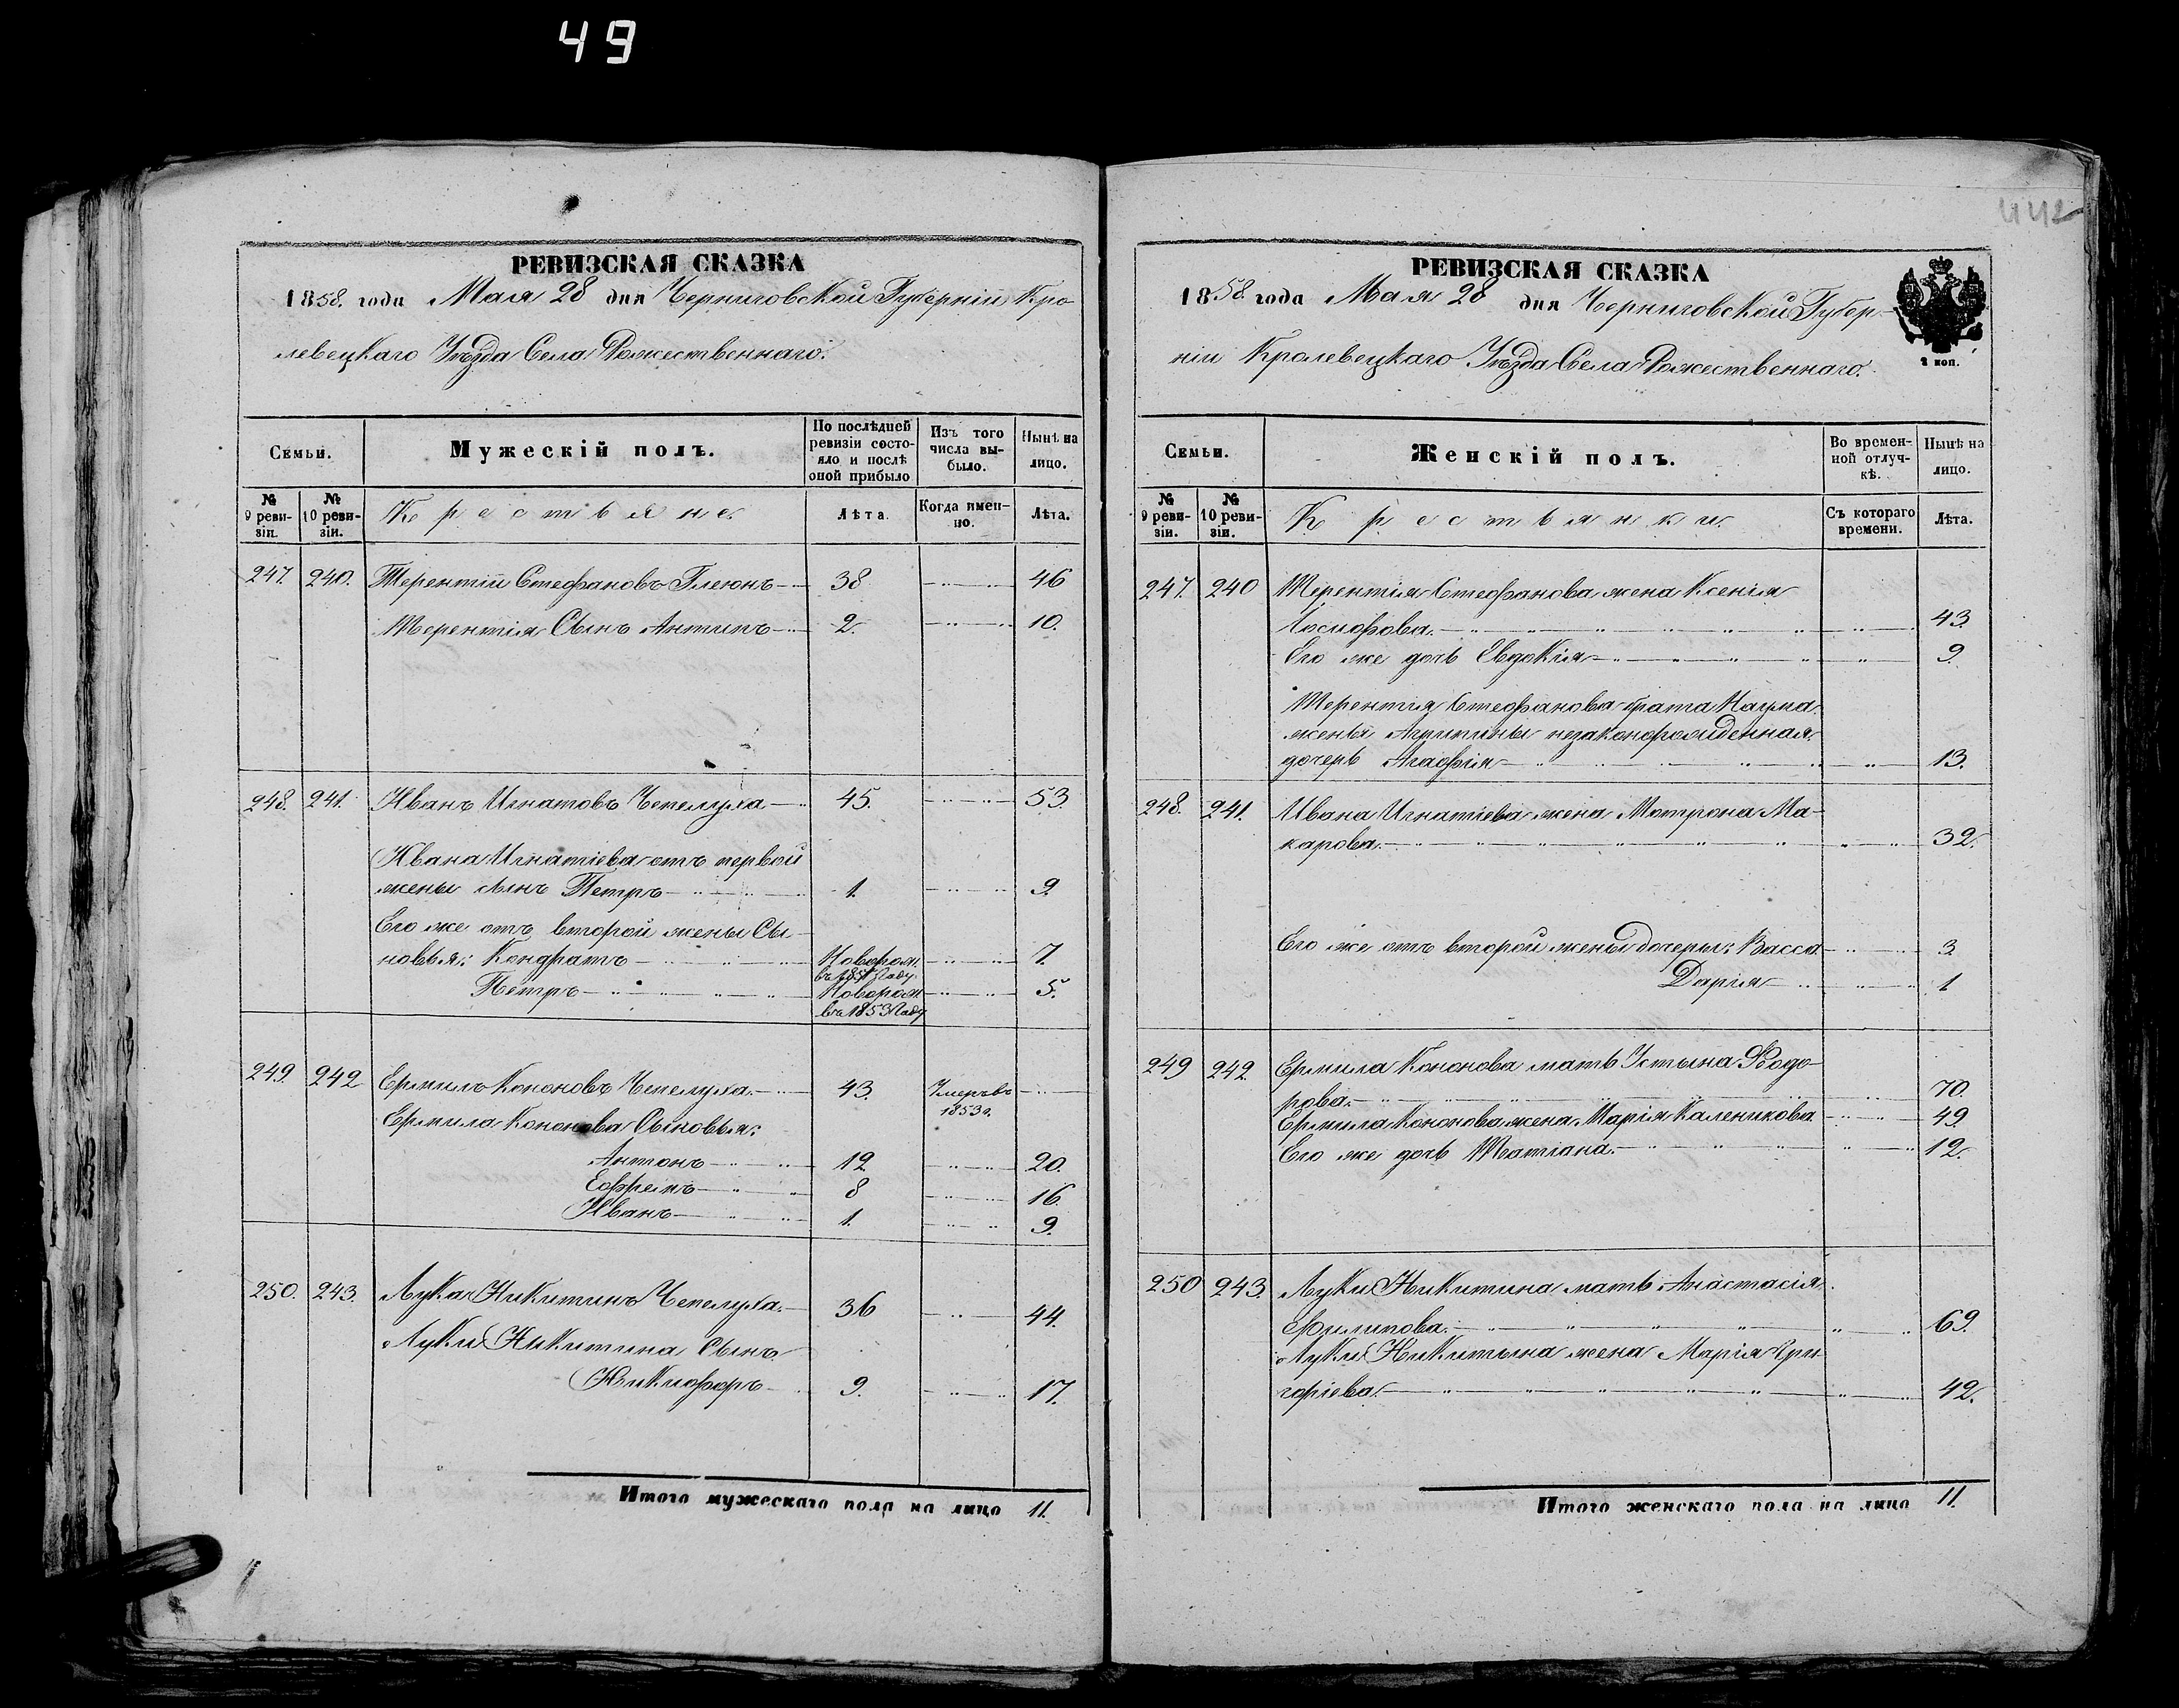 49
442
РЕВИЗСКАЯ СКАЗКА
1858. года Мая 28 дня Черниговской Губерніи Кро
левецкаго Уѣзда Села Рожественнаго.
Семьи.
Мужескій полъ.
По послѣдней ревизіи состояло и послѣ оной прибыло
Изъ того числа выбыло.
Нынѣ на лицо.
№ 9 ревизіи.
№ 10 ревизіи.
Крестьяне
Лѣта
Когда именно.
Лѣта.
247. 240. Терентій Стефановъ Глеюнъ 38 46
Терентія Сынъ Антипъ 2. 10.
248. 241. Иванъ Игнатовъ Чепелуха 45. 53.
Ивана Игнатіева отъ первой
жены сынъ Петръ 1. 9.
Его же отъ второй жены Сы-
новья: Кондратъ Новорож 7.
въ 1851 Году.
Петръ Новорож 5.
въ 1853 Году
249. 242 Ермилъ Кононовъ Чепелуха. 43. Умеръ въ
1853 г.
Ермила Кононова Сыновья:
Антонъ 12 20.
Ефремъ 8 16.
Иванъ 1. 9.
250. 243. Лука Никитинъ Чепелуха. 36 44.
Луки Никитина Сынъ
Никифоръ 9. 17.
Итого мужескаго пола на лицо 11.
РЕВИЗСКАЯ СКАЗКА
1858. года Мая 28 дня Черниговской Губер-
ніи Кролевецкаго Уѣзда Села Рожественнаго.
2 коп.
Семьи.
Женскій полъ.
Во временной отлучкѣ.
Нынѣ на лицо.
№ 9 ревизіи.
№ 10 ревизіи.
Крестьянки.
Съ котораго времени.
Лѣта.
247. 240 Терентія Стефанова жена Ксенія
Іосифова. 43.
Его же дочь Евдокія 9.
Терентія Стефанова брата Наума
жены Агрипины незаконорожденная
дочерь Агафія 13.
248. 241. Ивана Игнатіева жена Матрона Ма-
карова. 32.
Его же отъ второй жены дочери: Васса 3
Дарія 1
249 242. Ермила Кононова мать Устына Ѳодо-
рова. 70.
Ермила Кононова жена Марія Каленикова 49.
Его же дочь Татіана. 12.
250 243. Луки Никитина мать Анастасія
Филипова. 69.
Луки Никитына жена Марія Гри-
горіева. 42.
Итого женскаго пола на лицо 11.